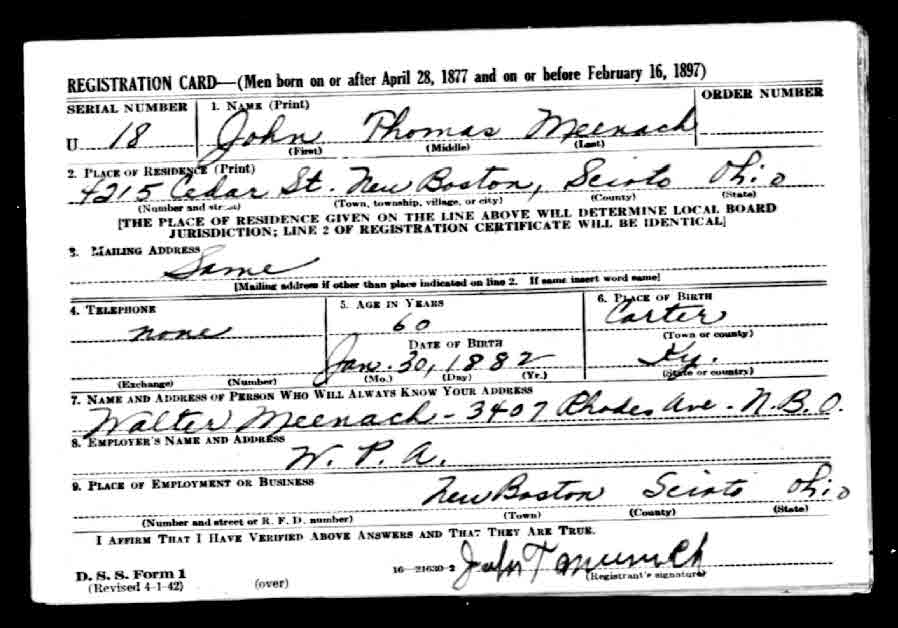 REGISTRATION CARD—(Men born on or after April 28, 1877 and on or before February 16, 1897)
SERIAL NUMBER 1. NAME (Print) ORDER NUMBER
U 18 John Thomas Meenach
(First) (Middle) (Last)
2. PLACE OF RESIDENCE (Print)
4215 Cedar St. New Boston, Scioto Ohio
(Number and street) (Town, township, village, or city) (County) (State)
[THE PLACE OF RESIDENCE GIVEN ON THE LINE ABOVE WILL DETERMINE LOCAL BOARD
JURISDICTION; LINE 2 OF REGISTRATION CERTIFICATE WILL BE IDENTICAL]
3. MAILING ADDRESS
Same
[Mailing address if other than place indicated on line 2. If same insert word same]
4. TELEPHONE 5. AGE IN YEARS 6. PLACE OF BIRTH
none 60 Carter
(Town or county)
DATE OF BIRTH
Jan. 30, 1882 Ky.
(Exchange) (Number) (Mo.) (Day) (Yr.) (State or country)
7. NAME AND ADDRESS OF PERSON WHO WILL ALWAYS KNOW YOUR ADDRESS
Walter Meenach - 3407 Rhodes Ave - N.B.O.
8. EMPLOYER'S NAME AND ADDRESS
W. P. A.
9. PLACE OF EMPLOYMENT OR BUSINESS
New Boston Scioto Ohio
(Number and street or R. F. D. number) (Town) (County) (State)
I AFFIRM THAT I HAVE VERIFIED ABOVE ANSWERS AND THAT THEY ARE TRUE.
John T Meenach
D. S. S. Form 1 16—21630-2 (Registrant's signature)
(Revised 4-1-42) (over)